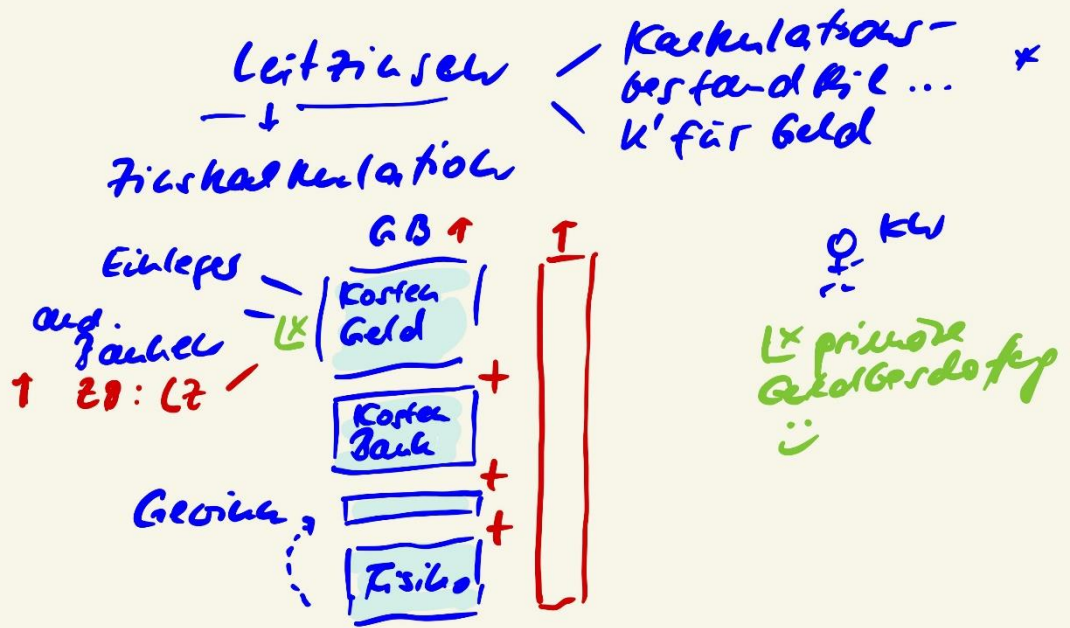 Leitzinsen
Kalkulations-
bestandteil ... *
K' für Geld
Zinskalkulation
GB ↑ ↑
Einleger
and.
Banken
↑ ZB: LZ
L*
Kosten
Geld
+
Kosten
Bank
+
Gewinn
+
Risiko
KN
L* primäre
Geldbeschaffg